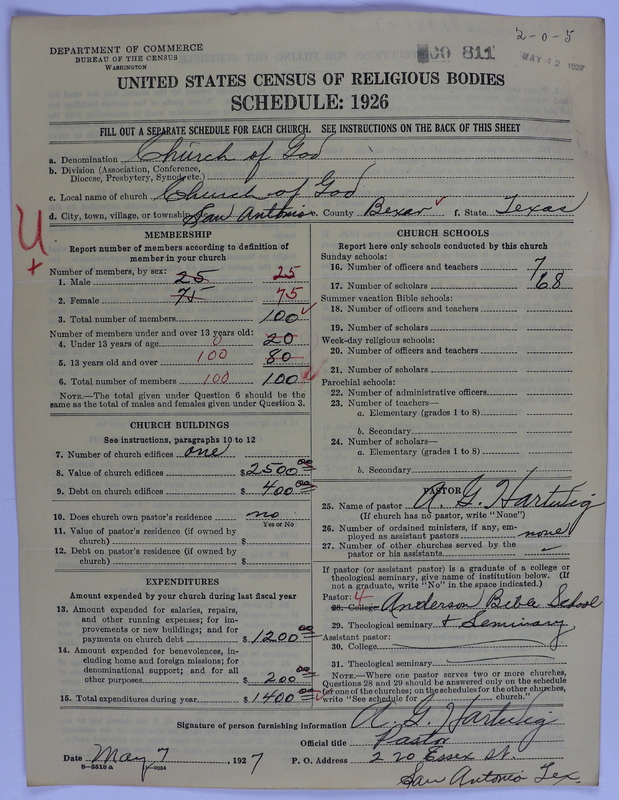 2-0-5
DEPARTMENT OF COMMERCE
BUREAU OF THE CENSUS
WASHINGTON
00 811
MAY 12 1927
UNITED STATES CENSUS OF RELIGIOUS BODIES
SCHEDULE: 1926
FILL OUT A SEPARATE SCHEDULE FOR EACH CHURCH. SEE INSTRUCTIONS ON THE BACK OF THIS SHEET
a. Denomination Church of God
b. Division (Association, Conference,
Diocese, Presbytery, Synod, etc.)
c. Local name of church Church of God
d. City, town, village, or township San Antonio e. County Bexar f. State Texas
U
+
MEMBERSHIP
Report number of members according to definition of
member in your church
Number of members, by sex:
1. Male 25 25
2. Female 75 75
3. Total number of members 100
Number of members under and over 13 years old:
4. Under 13 years of age 0 20
5. 13 years old and over 100 80
6. Total number of members 100 100
NOTE.—The total given under Question 6 should be
same as the total of males and females given under Question 3.
CHURCH BUILDINGS
See instructions, paragraphs 10 to 12
7. Number of church edifices one
8. Value of church edifices $2500.00
9. Debt on church edifices $400.00
10. Does church own pastor's residence no
Yes or No
11. Value of pastor's residence (if owned by
church) $
12. Debt on pastor's residence (if owned by
church) $
EXPENDITURES
Amount expended by your church during last fiscal year
13. Amount expended for salaries, repairs,
and other running expenses; for im-
provements or new buildings; and for
payments on church debt $1200.00
14. Amount expended for benevolences, in-
cluding home and foreign missions; for
denominational support; and for all
other purposes $200.00
15. Total expenditures during year $1400.00
CHURCH SCHOOLS
Report here only schools conducted by this church
Sunday schools:
16. Number of officers and teachers 7
17. Number of scholars 68
Summer vacation Bible schools:
18. Number of officers and teachers
19. Number of scholars
Week-day religious schools:
20. Number of officers and teachers
21. Number of scholars
Parochial schools:
22. Number of administrative officers
23. Number of teachers—
a. Elementary (grades 1 to 8)
b. Secondary
24. Number of scholars—
a. Elementary (grades 1 to 8)
b. Secondary
PASTOR
25. Name of pastor A. G. Hartwig
(If church has no pastor, write "None")
26. Number of ordained ministers, if any, em-
ployed as assistant pastors none
27. Number of other churches served by the
pastor or his assistants
If pastor (or assistant pastor) is a graduate of a college or
theological seminary, give name of institution below. (If
not a graduate, write "No" in the space indicated.)
Pastor: 4
28. College Anderson Bible School
29. Theological seminary + Seminary
Assistant pastor:
30. College
31. Theological seminary
NOTE.—Where one pastor serves two or more churches,
Questions 28 and 29 should be answered only on the schedule
for one of the churches; on the schedules for the other churches,
write "See schedule for church."
Signature of person furnishing information A. G. Hartwig
Official title Pastor
Date May 7, 1927 P. O. Address 220 Essex St.
San Antonio Tex.